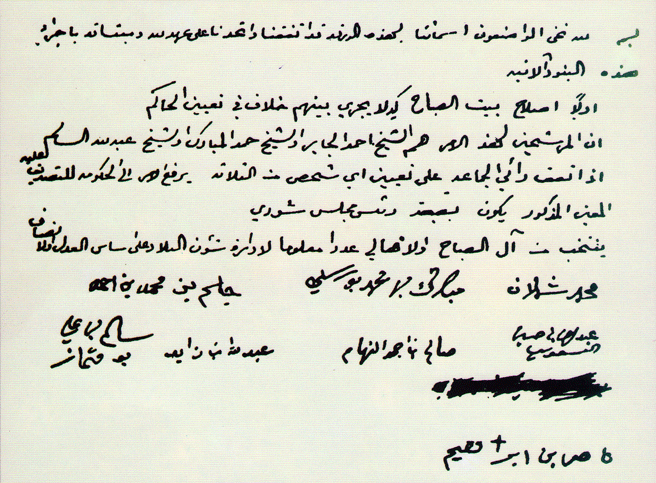 لله نحن الواضعون اسمائنا بهذه الورقة قد اتفقنا واتحدنا على عهد لله وميثاقه باجراء
هذه البنود الاتيه
اولاً اصلاح بيت الصباح كيلا يجري بينهم خلاف في تعيين الحاكم
ان المرشحين لهذا الامر هم الشيخ احمد الجابر والشيخ حمد المبارك والشيخ عبدلله السالم
اذا اتفق رأي الجماعه على تعيين اي شخص من الثلاثه يرفع امره الى الحكومه للتصديق عليه
المعين المذكور يكون بصفته رئيس مجلس شوري
ينتخب من آل الصباح والاهالي عددا معلوما لادارة شئون البلاد على ساس العدل والانصاف
محمد شملان
مبارك بن محمد بورسلي
جاسم بن محمد بن احمد
صالح بن احمد النهام
عبدلله بن زايد
سالم بن علي
بو قماز
ابر